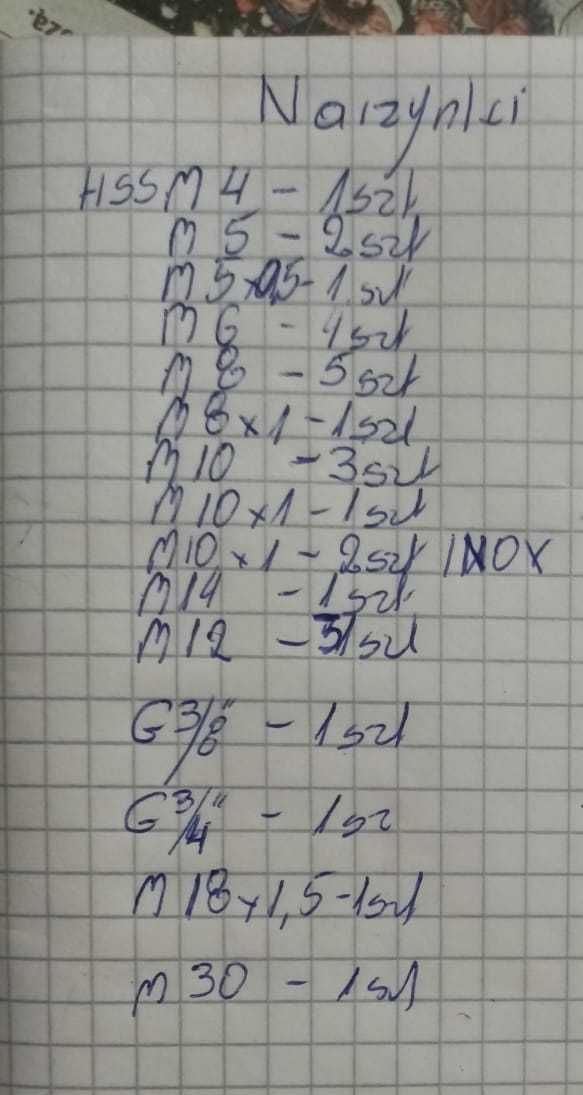 Narzynki
HSS M 4 - 1szt
M 5 - 2szt
M 5x0,5 - 1szt
M 6 - 4szt
M 8 - 5szt
M 8x1 - 1szt
M 10 - 3szt
M 10x1 - 1szt
M10x1 - 2szt INOX
M14 - 1szt
M12 - szt
G 3/8" - 1szt
G 3/4" - 1sz
M 18x1,5 - 1szt
M 30 - 1szt